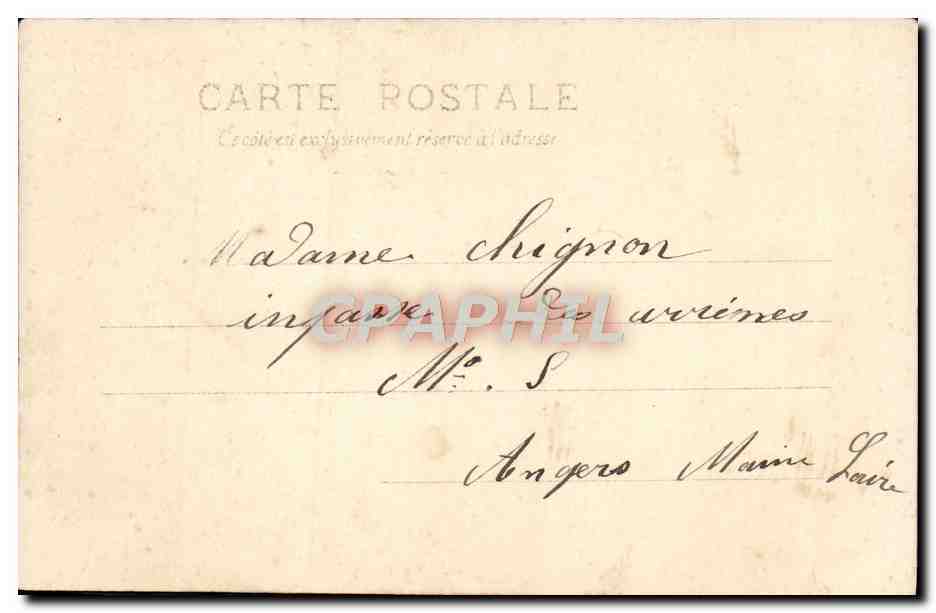 CARTE POSTALE
Ce côté est exclusivement réservé à l'adresse
Madame Chignon
des
CPAPHIL
No. S
Angers Maine Loire